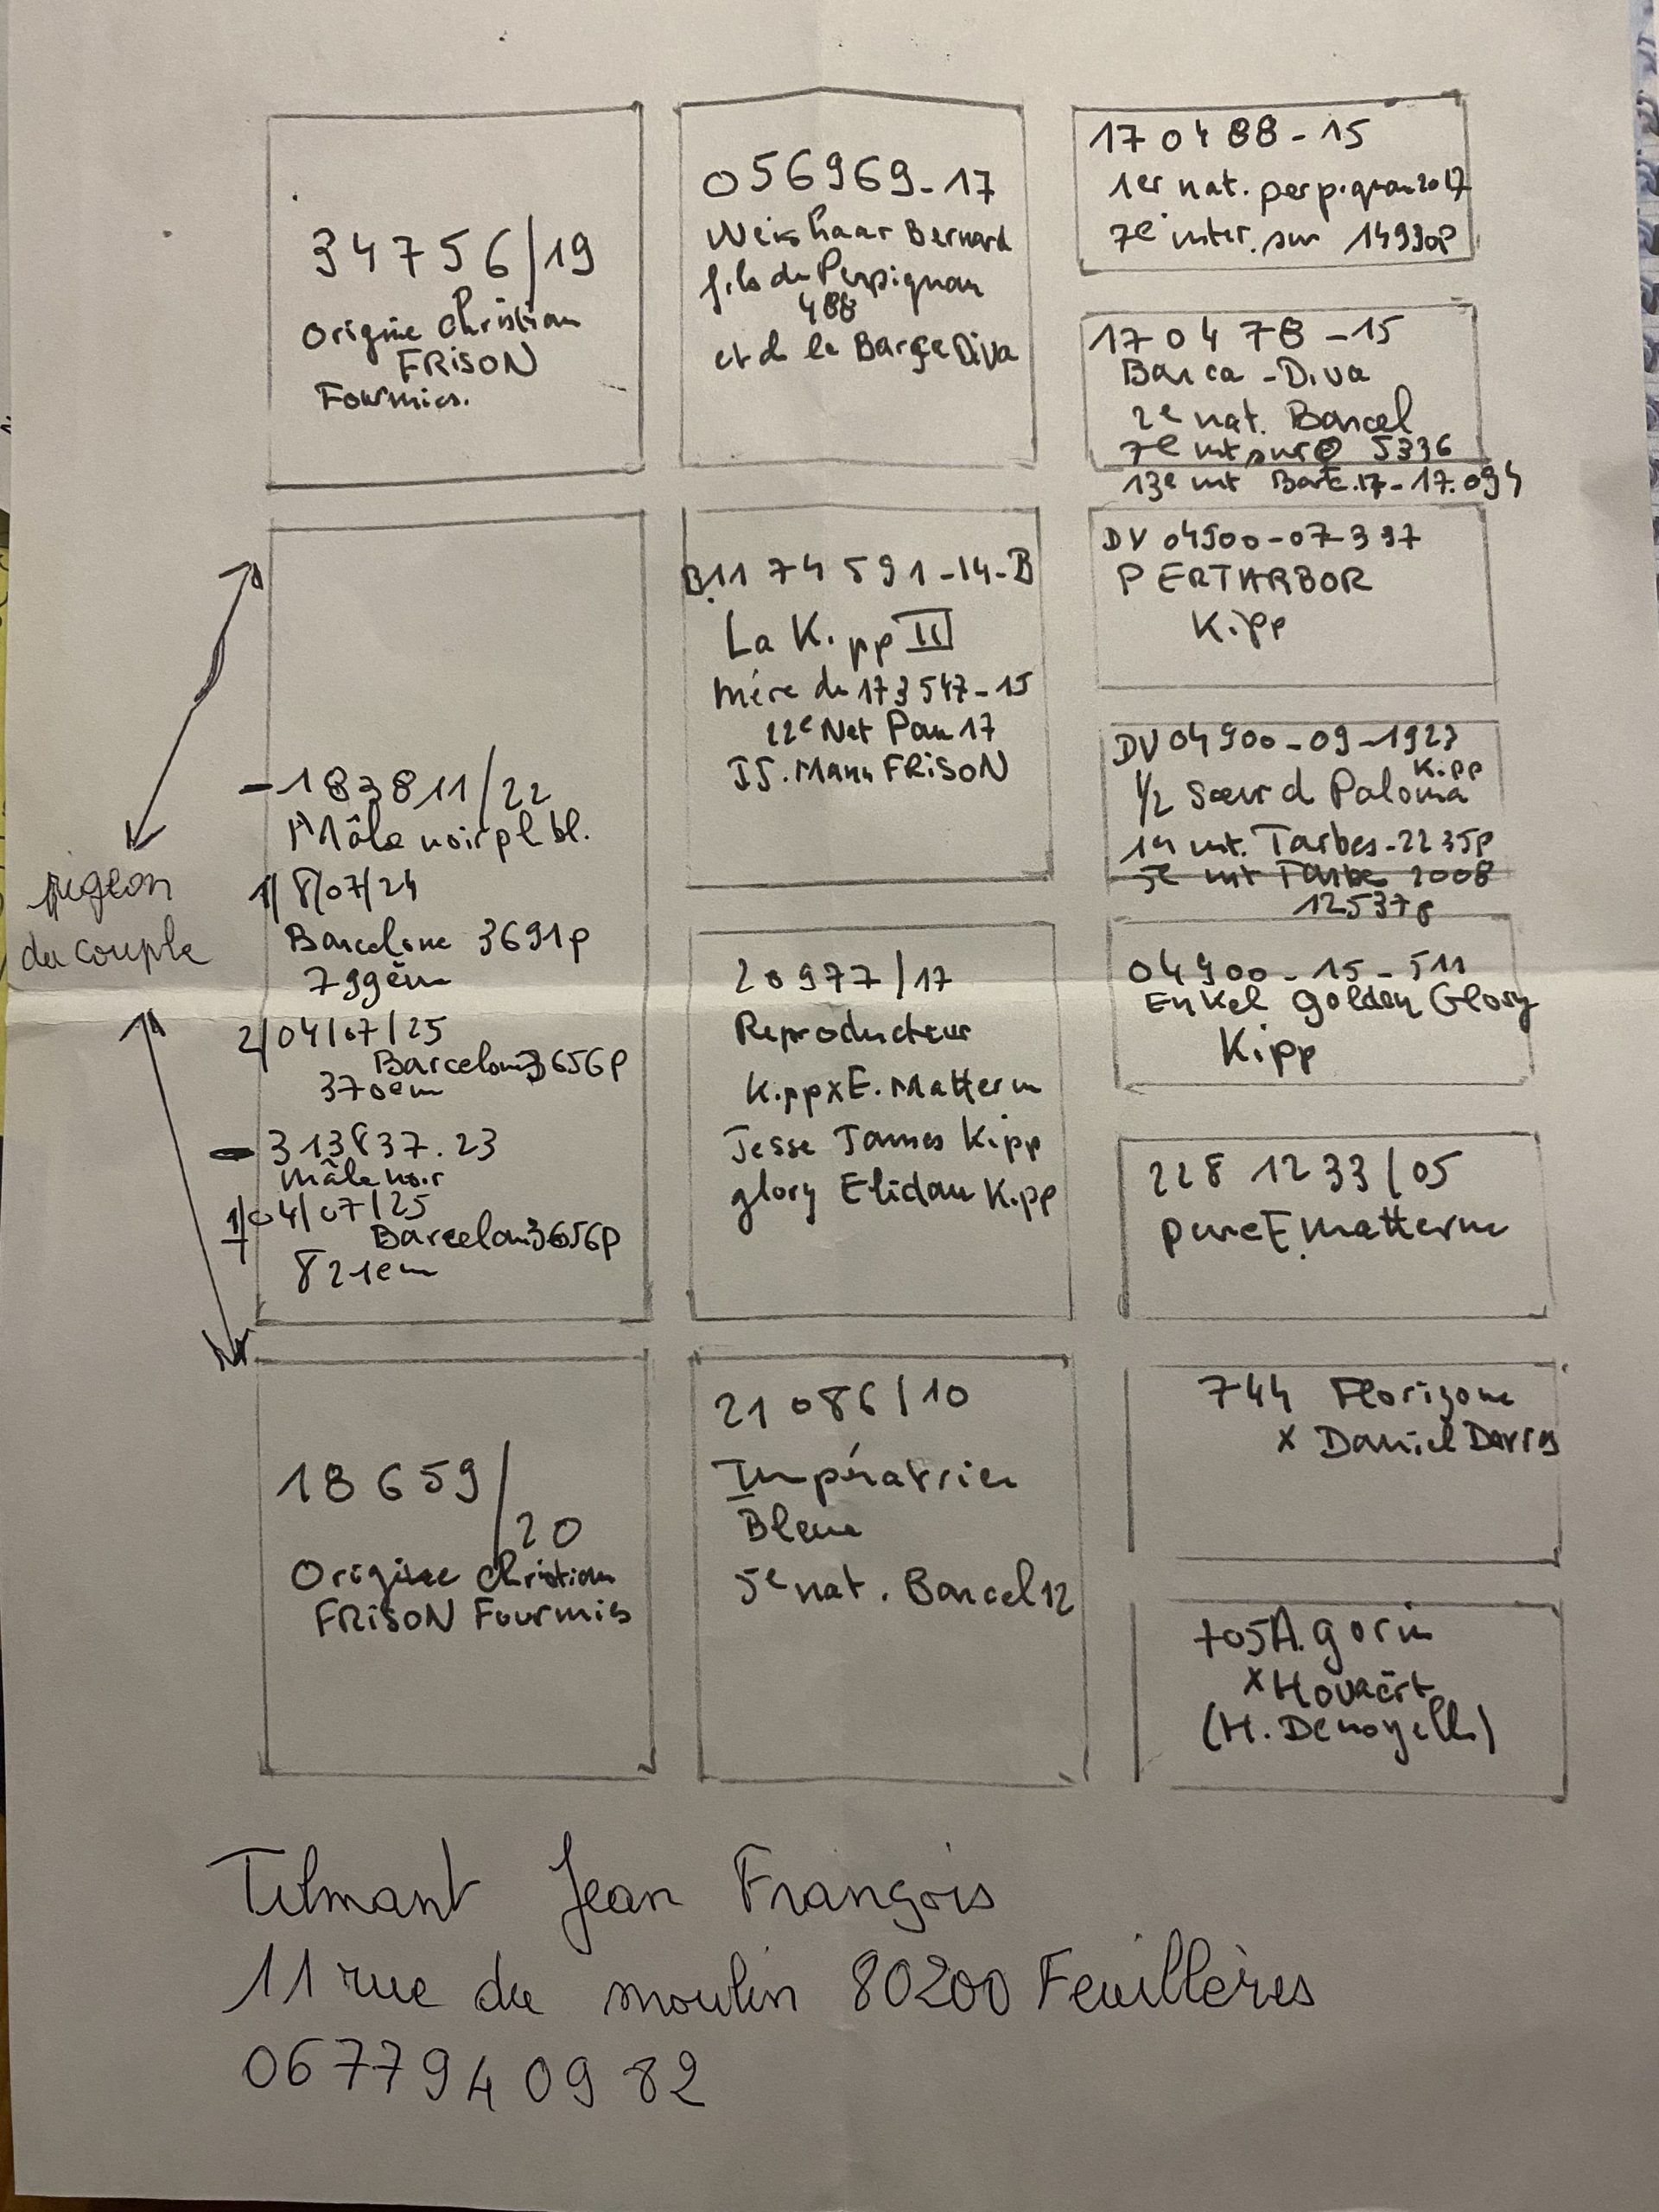 34756/19
Origine Christian
FRISON
Fourmies.
056969-17
Weishaar Bernard
fils du Perpignan
488
et de la Barça Diva
170488-15
1er nat. perpignan 2017
7e inter. sur 14990p
170478-15
Barca-Diva
2e nat. Barcel
7e int sur 5336
13e int Barc.17-17.094
pigeon
du couple
-183811/22
Mâle noir pl bl.
1/ 8/07/24
Barcelone 3691p
799èm
2/04/07/25
Barcelone 3656p
370em
- 313837.23
Mâle noir
1/04/07/25
Barcelone 3656p
821em
B.1174591-14-B
La Kipp II
mère du 173547-15
22e Nat Pau 17
JJ. Mann FRISON
DV 04900-07-397
PERTHARBOR
Kipp
DV 04900-09-1923
1/2 Sœur d Paloma Kipp
1er int. Tarbes-2235p
5e int Tarbe 2008
12537p
20977/17
Reproducteur
KippxE.Mattern
Jesse James Kipp
glory Elidau Kipp
04900-15-511
Enkel Golden Glory
Kipp
228 1233/05
pure E.Matterne
18659/20
Origine Christian
FRISON Fourmies
21086/10
Impératrice
Bleue
5e nat. Barcel 12
744 Florizone
x Daniel
705 A. gorin
x Hovaërt
(H. Denoyelle)
Tilmant Jean François
11 rue du moulin 80200 Feuillères
0677940982